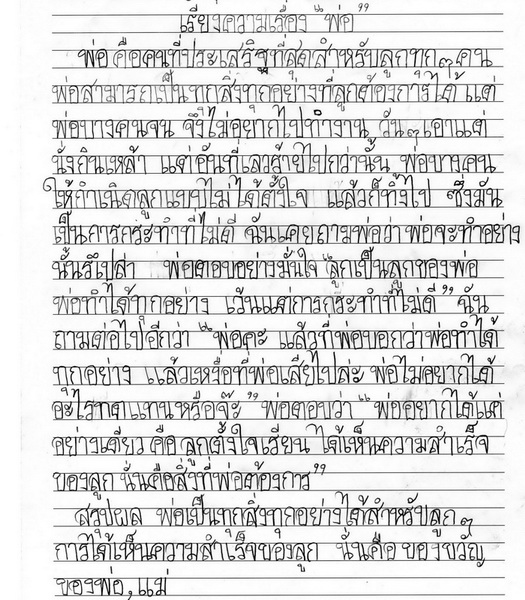 เรียงความเรื่อง "พ่อ"
พ่อ คือคนที่ประเสริฐที่สุดสำหรับลูกทุกๆคน
พ่อสามารถเป็นทุกสิ่งทุกอย่างที่ลูกต้องการได้ แต่
พ่อบางคนจน จึงไม่อยากไปทำงาน วันๆเอาแต่
นั่งกินเหล้า แต่อันที่เลวร้ายไปกว่านั้น พ่อบางคน
ให้กำเนิดลูกแบบไม่ได้ตั้งใจ แล้วก็ทิ้งไป ซึ่งมัน
เป็นการกระทำที่ไม่ดี ฉันเคยถามพ่อว่า พ่อจะทำอย่าง
นั้นรึเปล่า พ่อตอบอย่างมั่นใจ "ลูกเป็นลูกของพ่อ
พ่อทำได้ทุกอย่าง เว้นแต่การกระทำที่ไม่ดี" ฉัน
ถามต่อไปอีกว่า "พ่อคะ แล้วที่พ่อบอกว่าพ่อทำได้
ทุกอย่าง แล้วเหงื่อที่พ่อเสียไปล่ะ พ่อไม่อยากได้
อะไรทดแทนหรือจ๊ะ" พ่อตอบว่า "พ่ออยากได้แค่
อย่างเดียว คือ ลูกตั้งใจเรียน ได้เห็นความสำเร็จ
ของลูก นั่นคือสิ่งที่พ่อต้องการ"
สรุปผล พ่อเป็นทุกสิ่งทุกอย่างได้สำหรับลูกๆ
การได้เห็นความสำเร็จของลูก นั่นคือ ของขวัญ
ของพ่อ,แม่